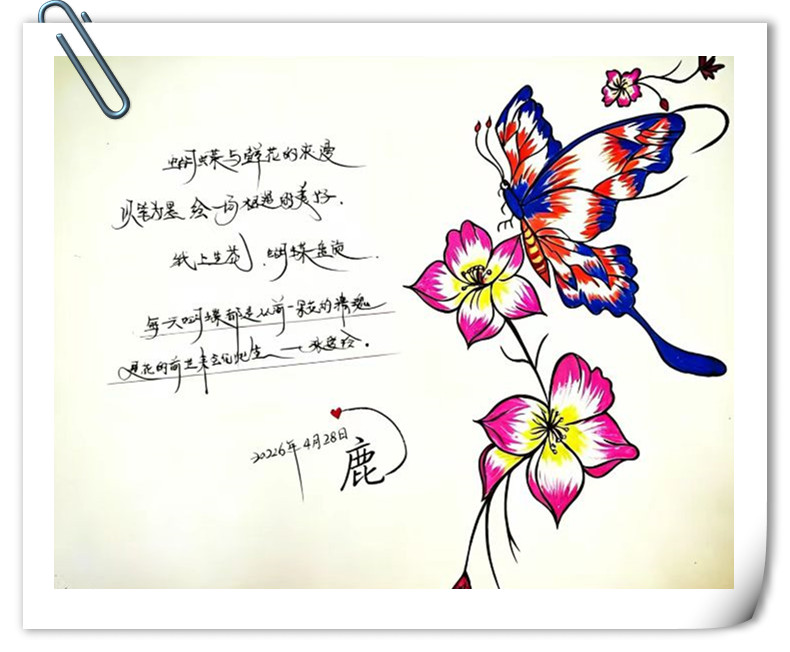 蝴蝶与鲜花的浪漫
以笔为墨 绘一场相遇的美好.
纸上生花, 蝴蝶盘旋.
每一只蝴蝶都是从前一朵花的精魂
是花的前世来会见他生——张爱玲.
2026年4月28日
鹿